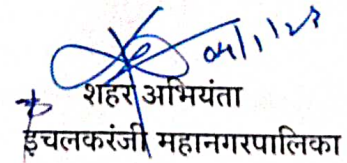 शहर अभियंता
इचलकरंजी महानगरपालिका